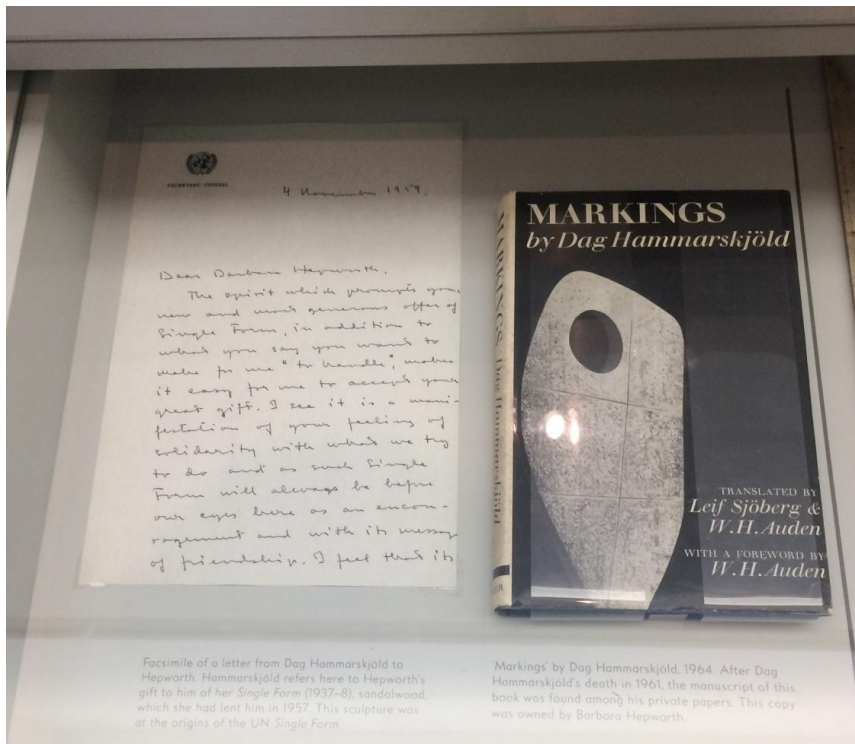 SECRETARY-GENERAL
4 November 1959.
Dear Barbara Hepworth.
The spirit which prompts your
new and most generous offer of
Single Form, in addition to
what you say you want to
make for me "to handle", makes
it easy for me to accept your
great gift. I see it is a mani-
festation of your feeling of
solidarity with what we try
to do and as such Single
Form will always be before
our eyes here as an encou-
ragement and with its message
of friendship. I feel that its
MARKINGS
by Dag Hammarskjöld
MARKINGS Dag Hammarskjöld
TRANSLATED BY
Leif Sjöberg &
W.H.Auden
WITH A FOREWORD BY
W.H.Auden
Facsimile of a letter from Dag Hammarskjöld to
Hepworth. Hammarskjöld refers here to Hepworth's
gift to him of her Single Form (1937–8), sandalwood,
which she had lent him in 1957. This sculpture was
at the origins of the UN Single Form.
'Markings' by Dag Hammarskjöld, 1964. After Dag
Hammarskjöld's death in 1961, the manuscript of this
book was found among his private papers. This copy
was owned by Barbara Hepworth.